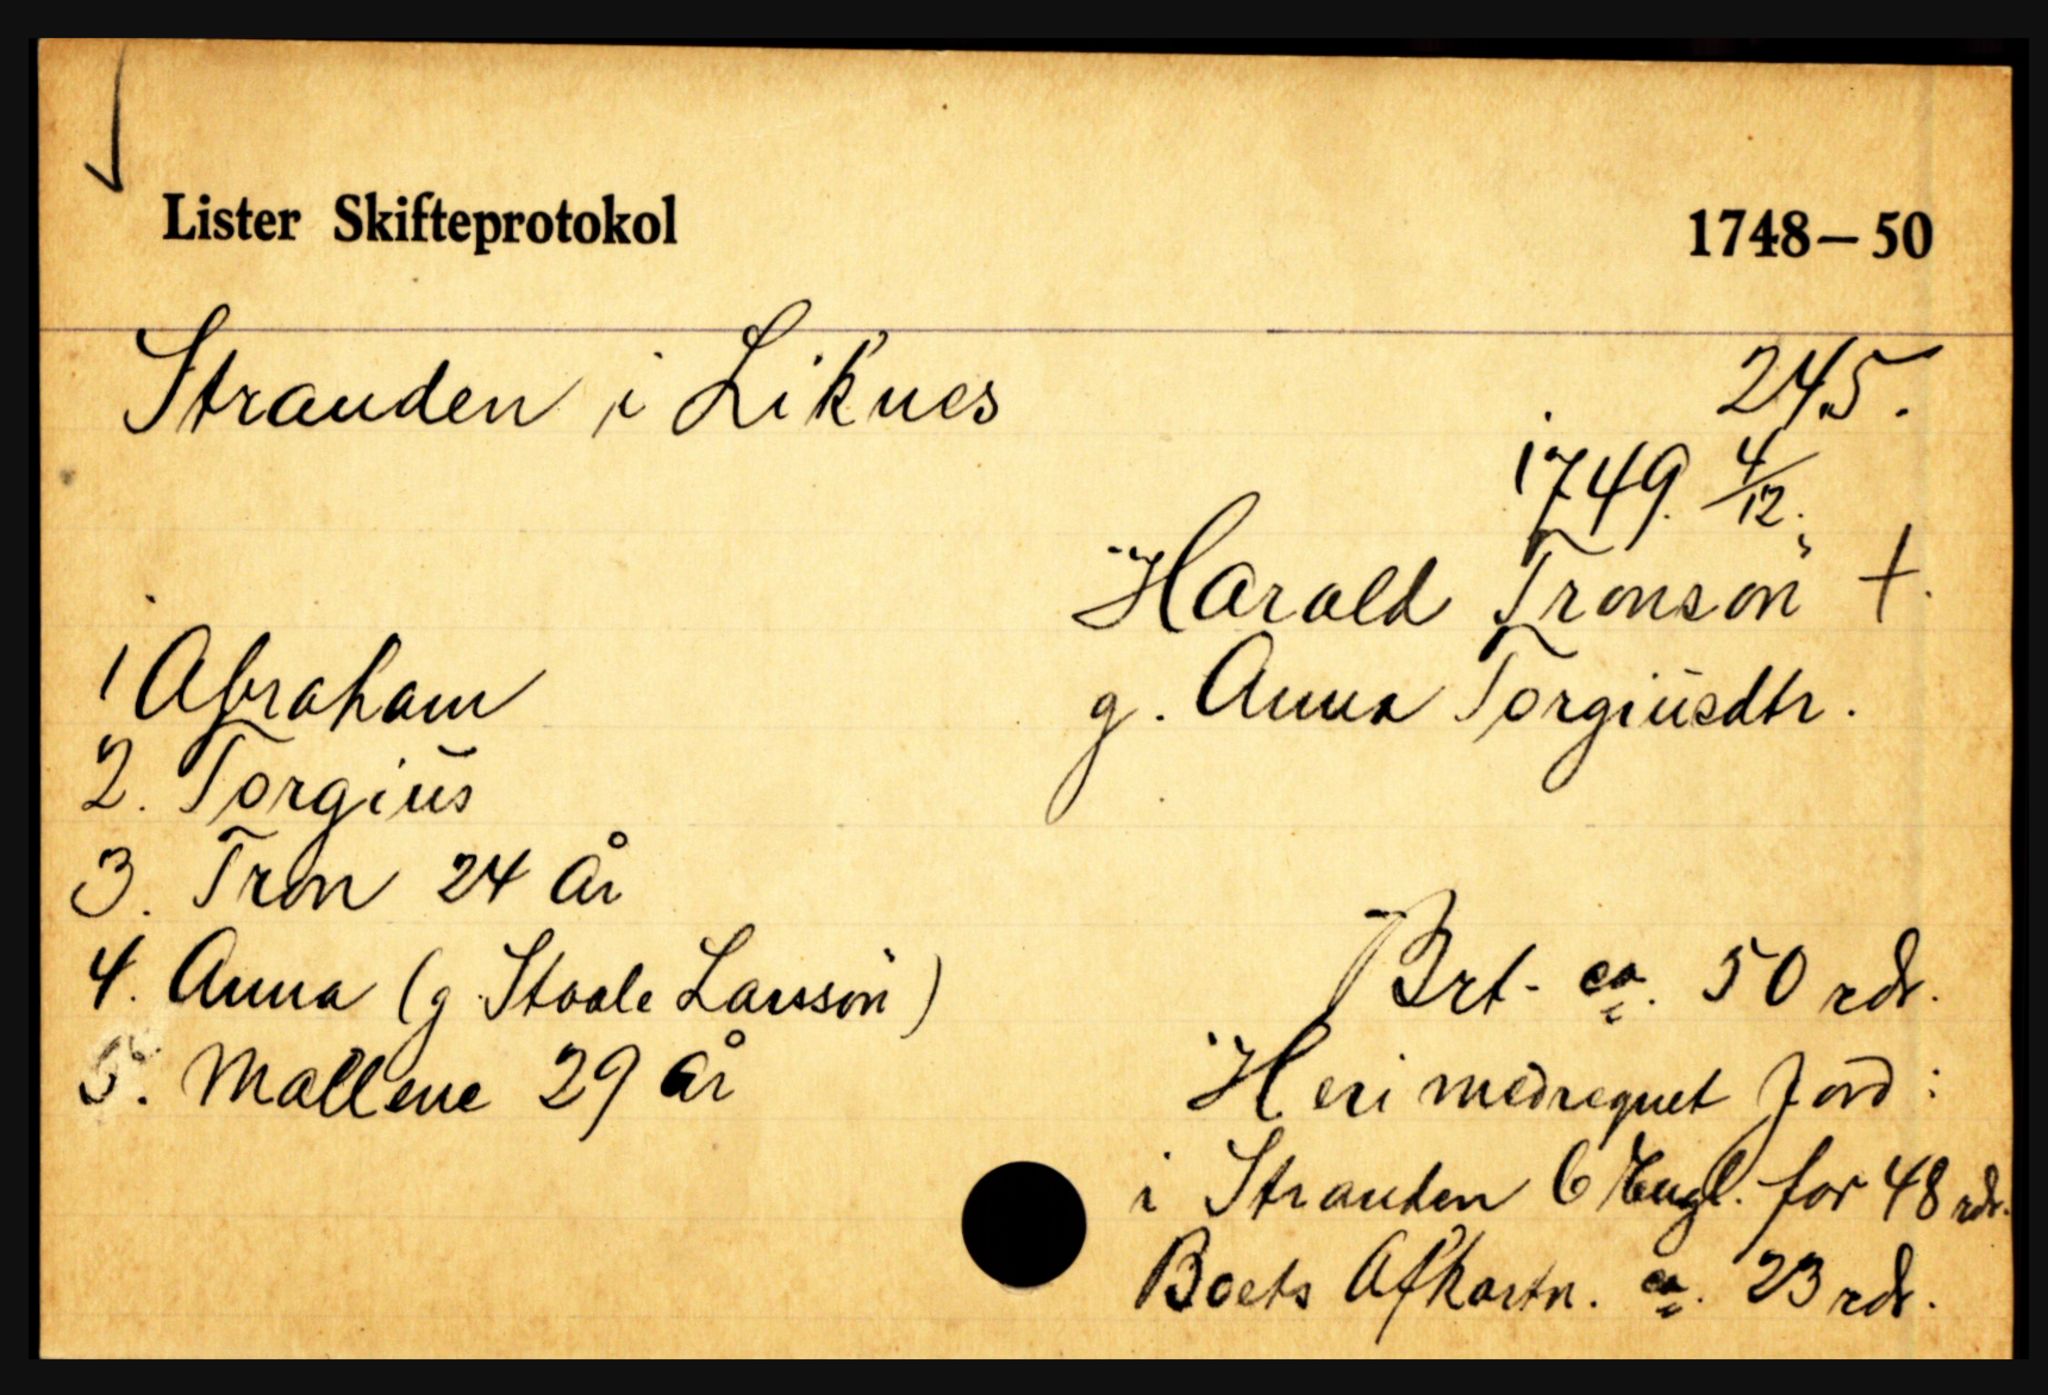 Lister Skifteprotokol 1748-50
Stranden i Liknes 245.
1749. 4/12.
Harald Tronsön †.
g. Anna Torgiusdtr.
1 Abraham
2. Torgius
3. Tron 24 år
4. Anna (g. Staale Larssön)
5. Mallene 29 år
Brt. ca. 50 rdr.
Heri medregnet Jord:
i Stranden 6 Engl. for 48 rdr.
Boets Afkastn. ca. 23 rdr.